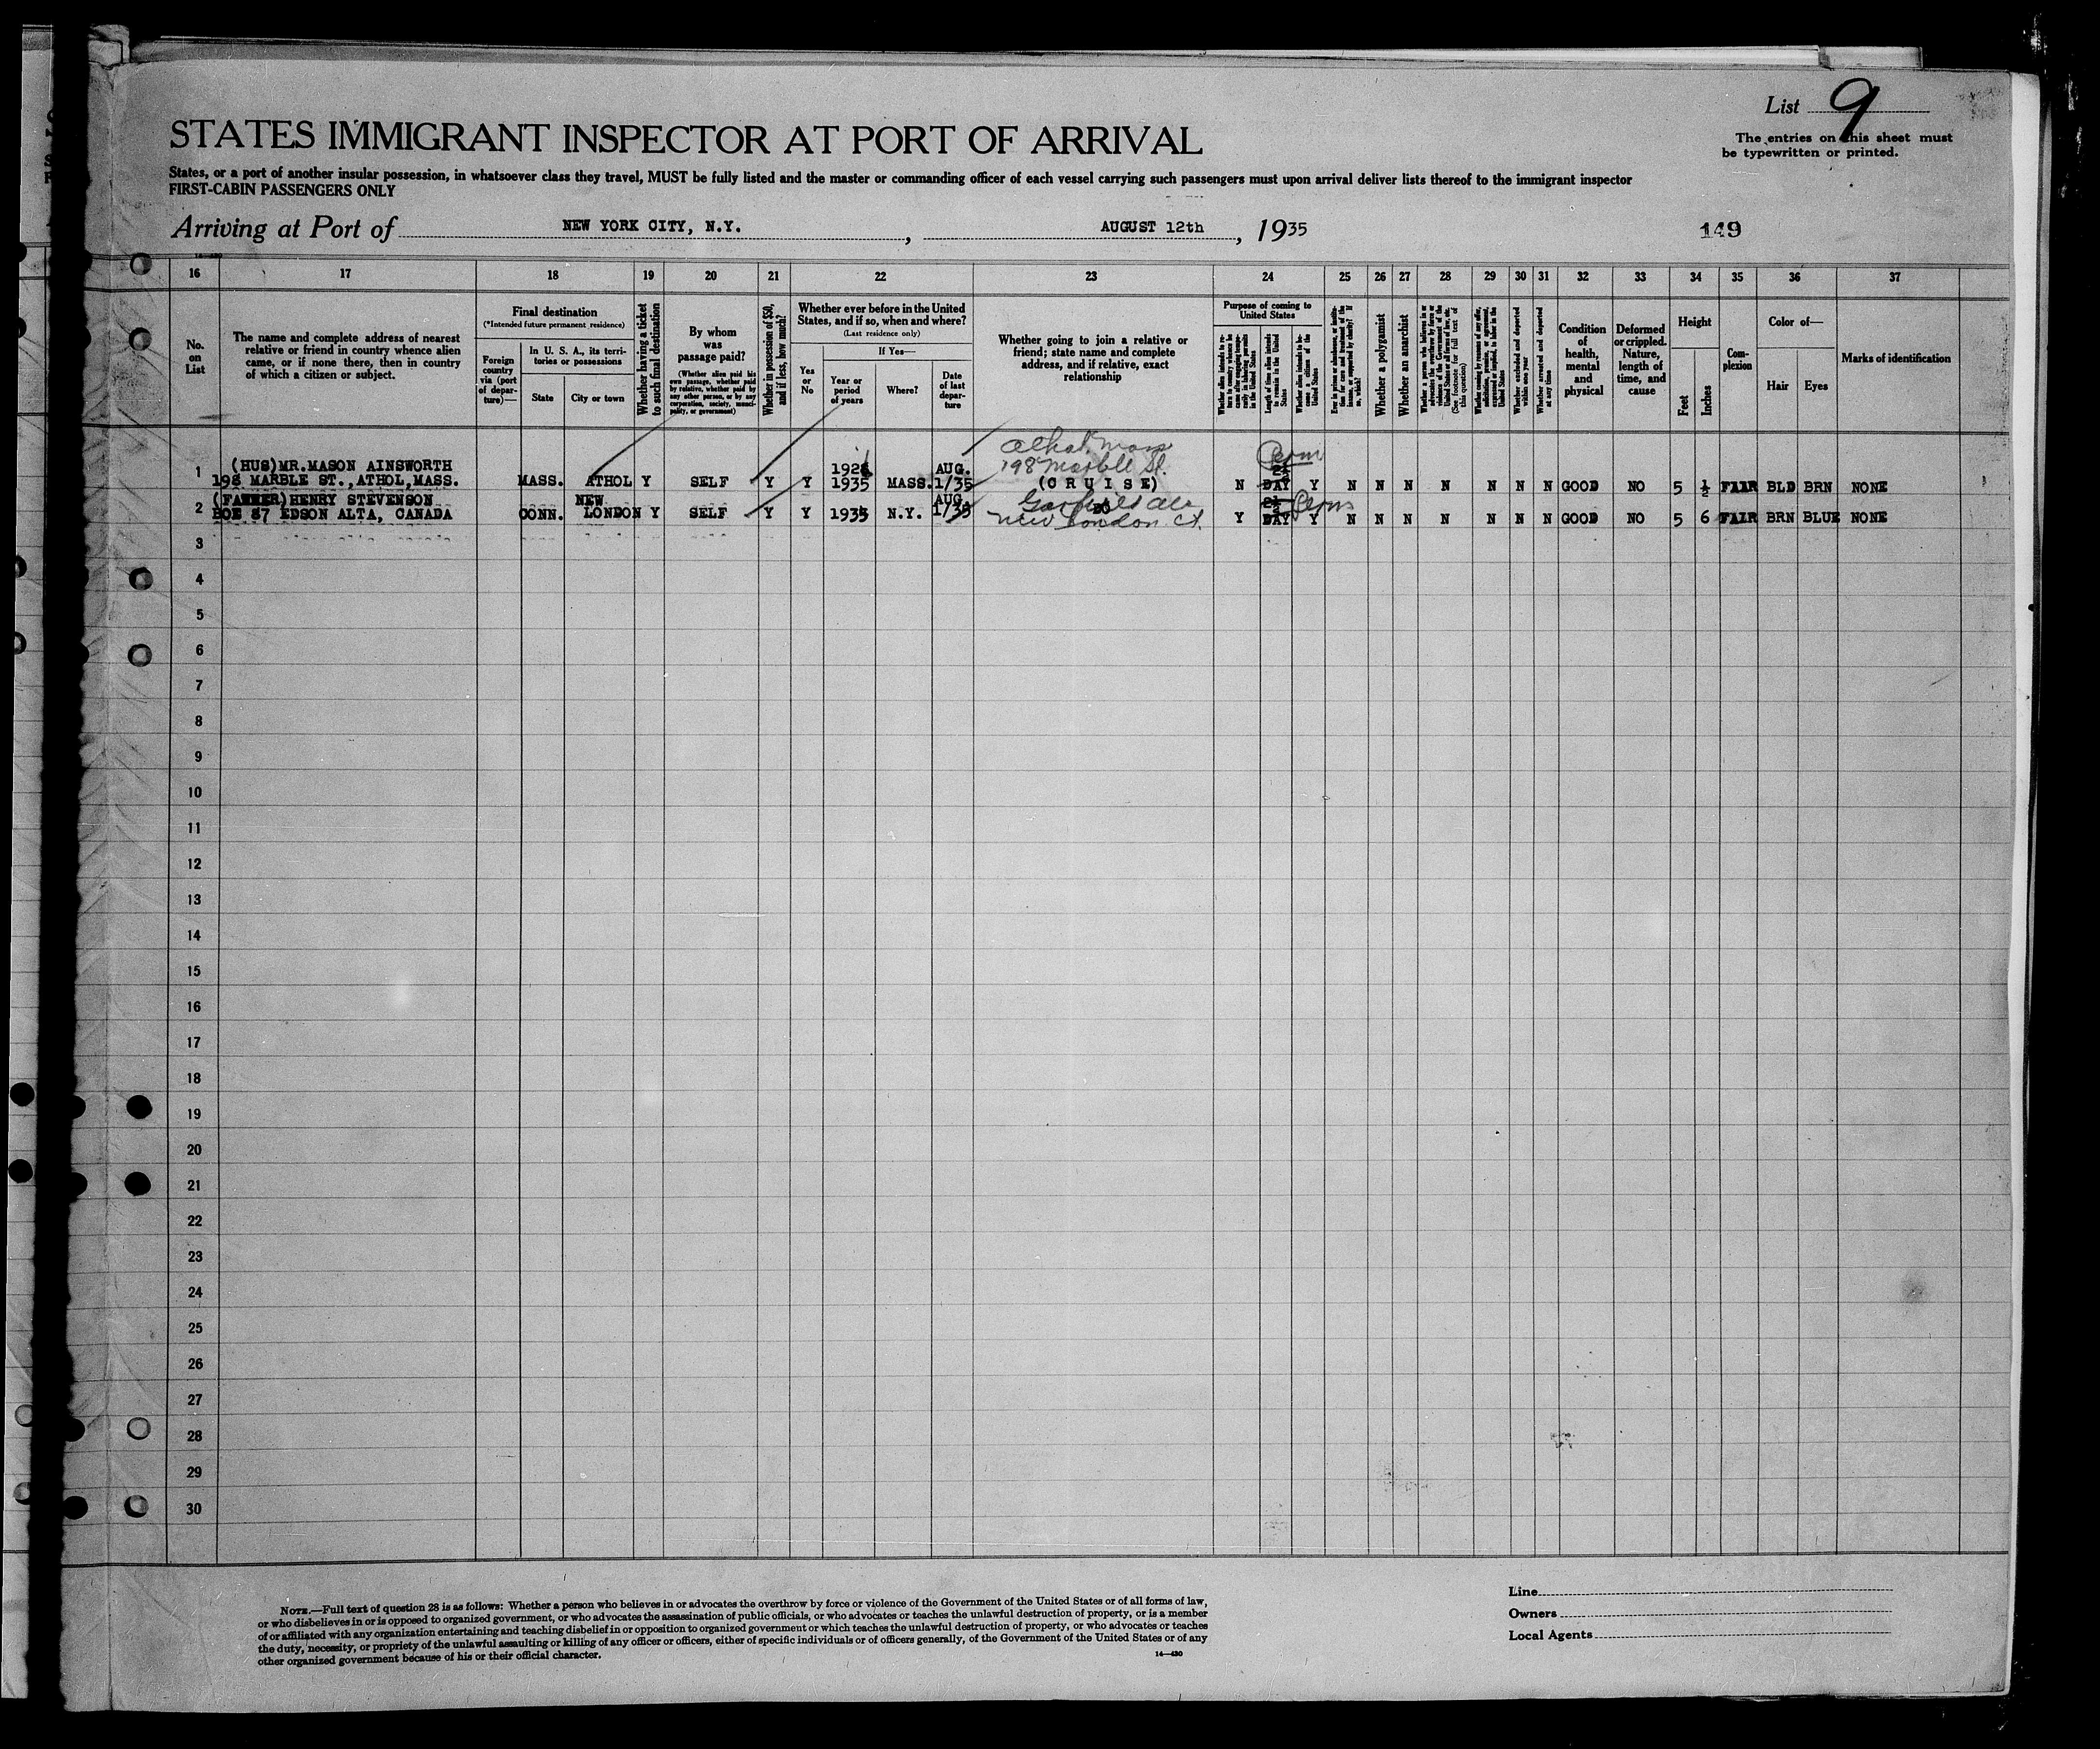 List 9
The entries on this sheet must
be typewritten or printed.
STATES IMMIGRANT INSPECTOR AT PORT OF ARRIVAL
States, or a port of another insular possession, in whatsoever class they travel, MUST be fully listed and the master or commanding officer of each vessel carrying such passengers must upon arrival deliver lists thereof to the immigrant inspector
FIRST-CABIN PASSENGERS ONLY
Arriving at Port of NEW YORK CITY, N.Y., AUGUST 12th, 1935
149
16 17 18 19 20 21 22 23 24 25 26 27 28 29 30 31 32 33 34 35 36 37
No.
on
List
The name and complete address of nearest
relative or friend in country whence alien
came, or if none there, then in country
of which a citizen or subject.
Final destination
(*Intended future permanent residence)
Foreign
country
via (port
of depar-
ture)—
In U. S. A., its terri-
tories or possessions
State
City or town
Whether having a ticket
to such final destination
By whom
was
passage paid?
(Whether alien paid his
own passage, whether paid
by relative, whether paid by
any other person, or by any
corporation, society, munici-
pality, or government)
Whether in possession of $50,
and if less, how much?
Whether ever before in the United
States, and if so, when and where?
(Last residence only)
Yes
or
No
If Yes—
Year or
period
of years
Where?
Date
of last
depar-
ture
Whether going to join a relative or
friend; state name and complete
address, and if relative, exact
relationship
Purpose of coming to
United States
Whether alien intends to re-
turn to country whence he
came after engaging tempo-
rarily in laboring pursuits
in the United States
Length of time alien intends
to remain in the United
States
Whether alien intends to be-
come a citizen of the
United States
Whether a polygamist
Whether an anarchist
Whether excluded and deported
within one year
Whether arrested and deported
at any time
Condition
of
health,
mental
and
physical
Deformed
or crippled.
Nature,
length of
time, and
cause
Height
Feet
Inches
Com-
plexion
Color of—
Hair
Eyes
Marks of identification
Athol, Mass
198 Marble St.
Perm
1 (HUS)MR.MASON AINSWORTH
198 MARBLE ST.,ATHOL,MASS. MASS. ATHOL Y SELF Y Y 1935 MASS. AUG. 1/35 (C R U I S E) N DAY Y N N N N N N N GOOD NO 5 ½ FAIR BLD BRN NONE
2 HENRY STEVENSON
BOX 87 EDSON ALTA, CANADA CONN. NEW LONDON Y SELF Y Y 1935 N.Y. AUG. 1/35 DO Y DAY Y N N N N N N N GOOD NO 5 6 FAIR BRN BLUE NONE
Garfield Ave
New London Ct.
Perm
3
4
5
6
7
8
9
10
11
12
13
14
15
16
17
18
19
20
21
22
23
24
25
26
27
28
29
30
NOTE.—Full text of question 28 is as follows: Whether a person who believes in or advocates the overthrow by force or violence of the Government of the United States or of all forms of law,
or who disbelieves in or is opposed to organized government, or who advocates the assassination of public officials, or who advocates or teaches the unlawful destruction of property, or is a member
of or affiliated with any organization entertaining and teaching disbelief in or opposition to organized government or which teaches the unlawful destruction of property, or who advocates or teaches
the duty, necessity, or propriety of the unlawful assaulting or killing of any officer or officers, either of specific individuals or of officers generally, of the Government of the United States or of any
other organized government because of his or their official character.
14—430
Line
Owners
Local Agents